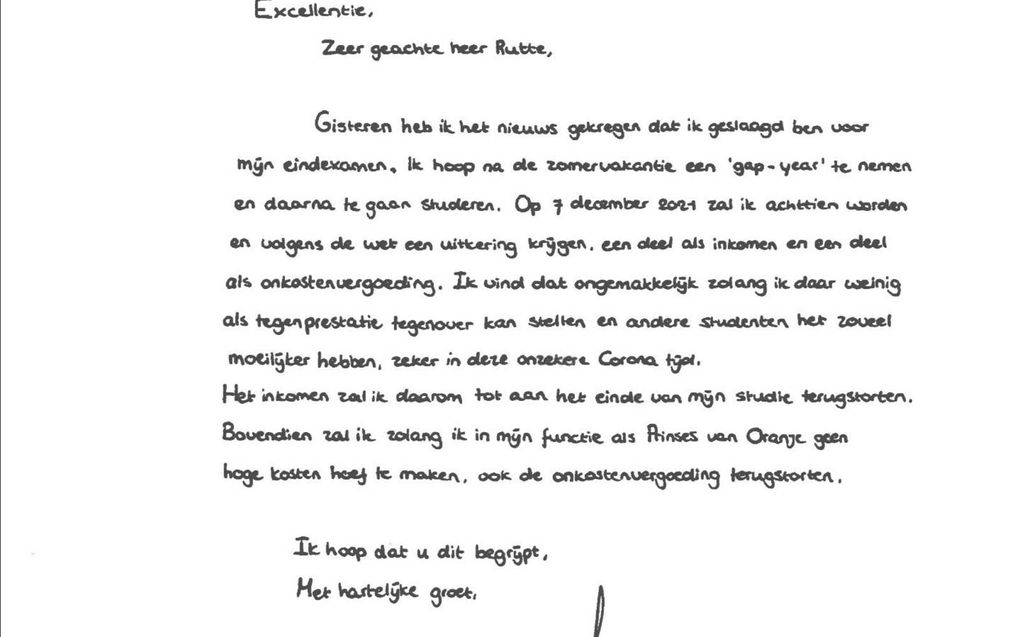 Excellentie,
Zeer geachte heer Rutte,
Gisteren heb ik het nieuws gekregen dat ik geslaagd ben voor
mijn eindexamen. Ik hoop na de zomervakantie een 'gap-year' te nemen
en daarna te gaan studeren. Op 7 december 2021 zal ik achttien worden
en volgens de wet een uitkering krijgen, een deel als inkomen en een deel
als onkostenvergoeding. Ik vind dat ongemakkelijk zolang ik daar weinig
als tegenprestatie tegenover kan stellen en andere studenten het zoveel
moeilijker hebben, zeker in deze onzekere Corona tijd.
Het inkomen zal ik daarom tot aan het einde van mijn studie terugstorten.
Bovendien zal ik zolang ik in mijn functie als Prinses van Oranje geen
hoge kosten hoef te maken, ook de onkostenvergoeding terugstorten.
Ik hoop dat u dit begrijpt,
Met hartelijke groet,